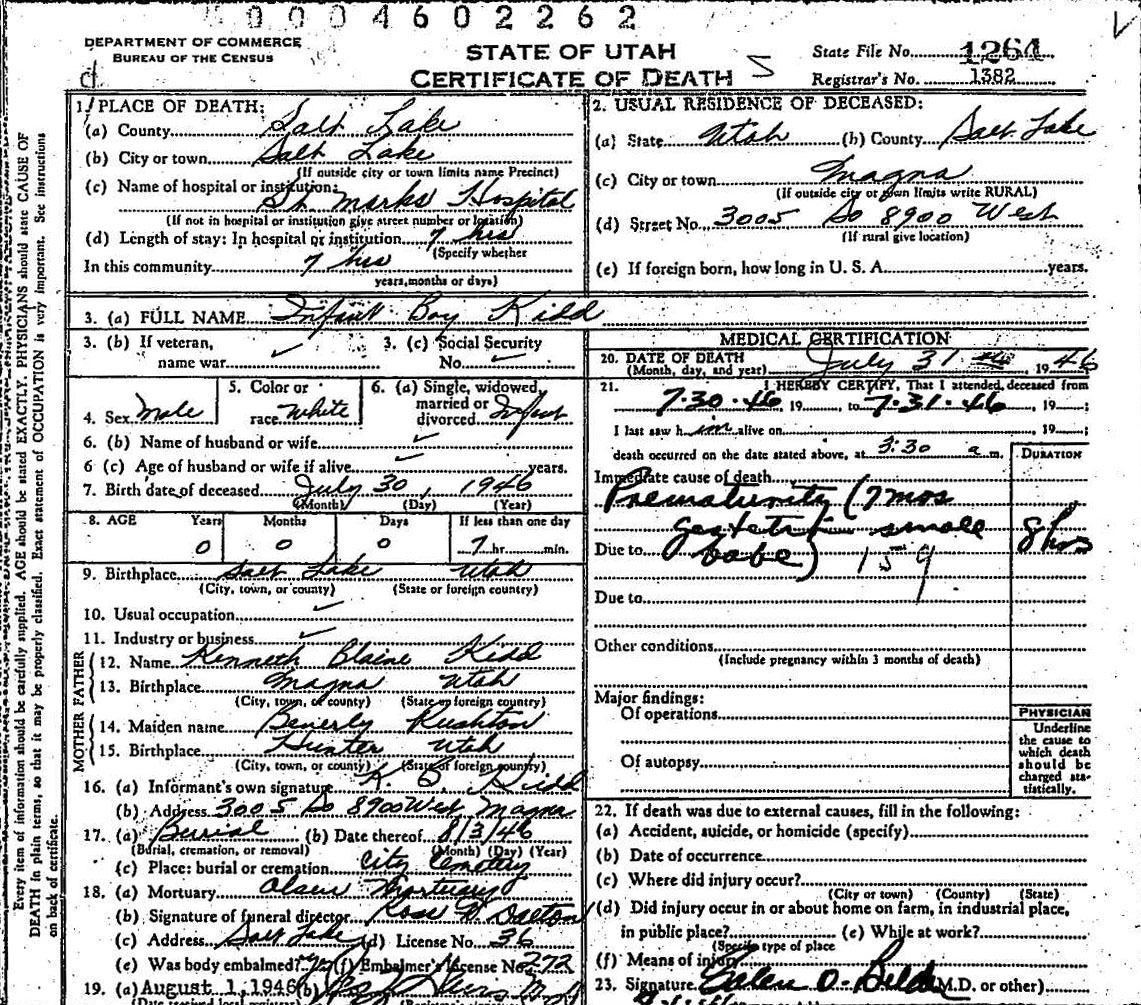 0004602262
DEPARTMENT OF COMMERCE
BUREAU OF THE CENSUS
STATE OF UTAH
CERTIFICATE OF DEATH
State File No. 1264
Registrar's No. 1382
1. PLACE OF DEATH:
(a) County Salt Lake
(b) City or town Salt Lake
(If outside city or town limits name Precinct)
(c) Name of hospital or institution:
St. Marks Hospital
(If not in hospital or institution give street number or location)
(d) Length of stay: In hospital or institution 7 hrs
(Specify whether
In this community 7 hrs
years, months or days)
2. USUAL RESIDENCE OF DECEASED:
(a) State Utah (b) County Salt Lake
(c) City or town Magna
(If outside city or town limits write RURAL)
(d) Street No. 3005 So 8900 West
(If rural give location)
(e) If foreign born, how long in U. S. A. years.
3. (a) FULL NAME Infant Boy Kidd
3. (b) If veteran,
name war
3. (c) Social Security
No.
4. Sex Male
5. Color or
race White
6. (a) Single, widowed,
married or
divorced Infant
6. (b) Name of husband or wife
6 (c) Age of husband or wife if alive years.
7. Birth date of deceased July 30, 1946
(Month) (Day) (Year)
8. AGE Years Months Days If less than one day
0 0 0 7 hr. min.
9. Birthplace Salt Lake Utah
(City, town, or county) (State or foreign country)
10. Usual occupation
11. Industry or business
FATHER
12. Name Kenneth Blaine Kidd
13. Birthplace Magna Utah
(City, town, or county) (State or foreign country)
MOTHER
14. Maiden name Beverly Rushton
15. Birthplace Hunter Utah
(City, town, or county) (State or foreign country)
16. (a) Informant's own signature K. B. Kidd
(b) Address 3005 So 8900 West Magna
17. (a) Burial (b) Date thereof 8/3/46
(Burial, cremation, or removal) (Month) (Day) (Year)
(c) Place: burial or cremation City Cemetery
18. (a) Mortuary Olsen Mortuary
(b) Signature of funeral director Rose W Dalton
(c) Address Salt Lake (d) License No. 36
(e) Was body embalmed? (f) Embalmer's License No. 272
19. (a) August 1, 1946 (b)
(Date received local registrar)
MEDICAL CERTIFICATION
20. DATE OF DEATH
(Month, day, and year) July 31 1946
21. I HEREBY CERTIFY, That I attended deceased from
7.30.46, 19 to 7.31.46, 19 ;
I last saw h im alive on , 19 ;
death occurred on the date stated above, at 3:30 a m.
DURATION
Immediate cause of death
Prematurity (7 mos
small
Due to babe) 159
8 hrs
Due to
Other conditions
(Include pregnancy within 3 months of death)
Major findings:
Of operations
Of autopsy
PHYSICIAN
Underline
the cause to
which death
should be
charged sta-
tistically.
22. If death was due to external causes, fill in the following:
(a) Accident, suicide, or homicide (specify)
(b) Date of occurrence
(c) Where did injury occur?
(City or town) (County) (State)
(d) Did injury occur in or about home on farm, in industrial place,
in public place? (e) While at work?
(Specify type of place
(f) Means of injury
23. Signature (M.D. or other)
Every item of information should be carefully supplied. AGE should be stated EXACTLY. PHYSICIANS should state CAUSE OF
DEATH in plain terms, so that it may be properly classified. Exact statement of OCCUPATION is very important. See instructions
on back of certificate.